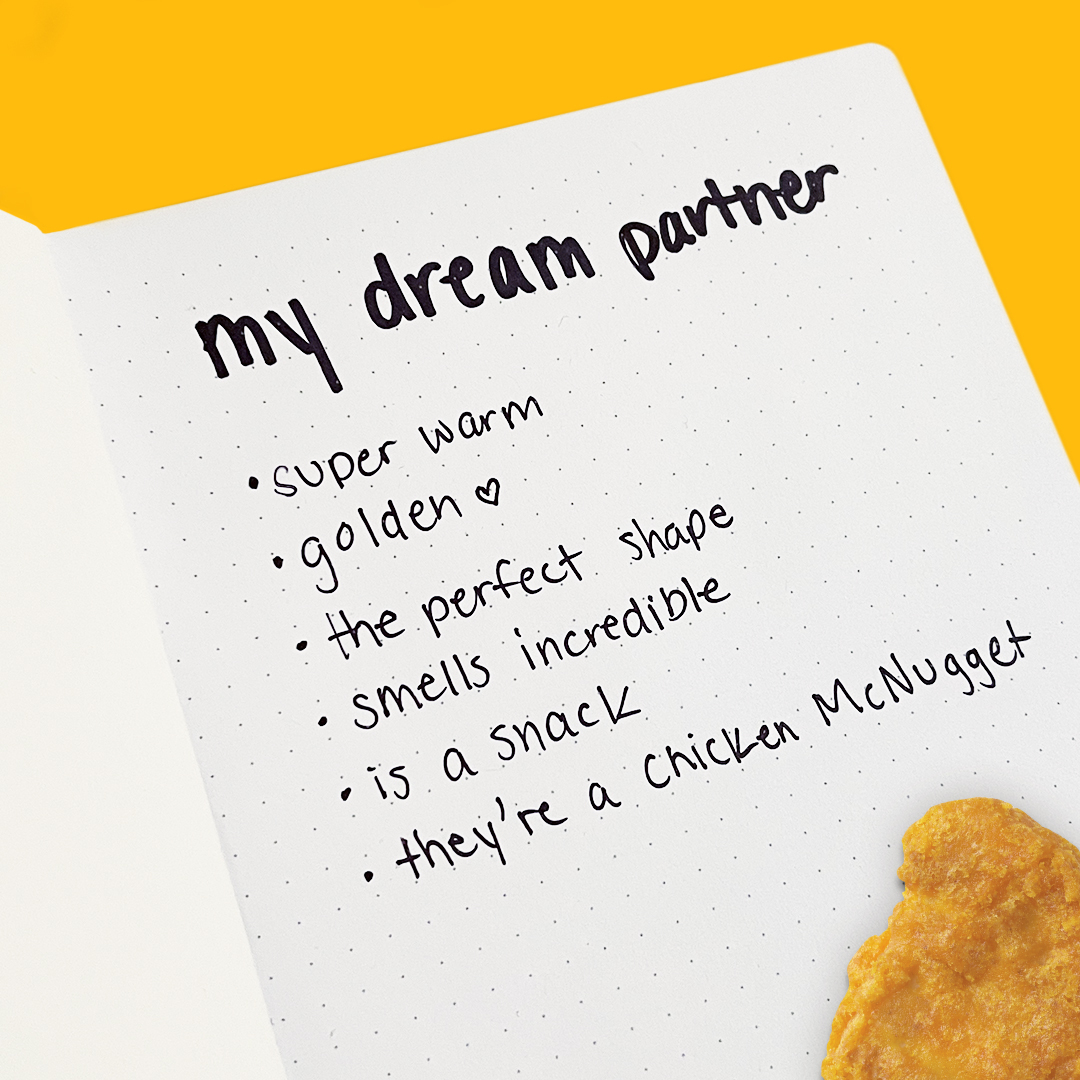 my dream partner
• super warm
• golden ♡
• the perfect shape
• smells incredible
• is a snack
• they're a Chicken McNugget